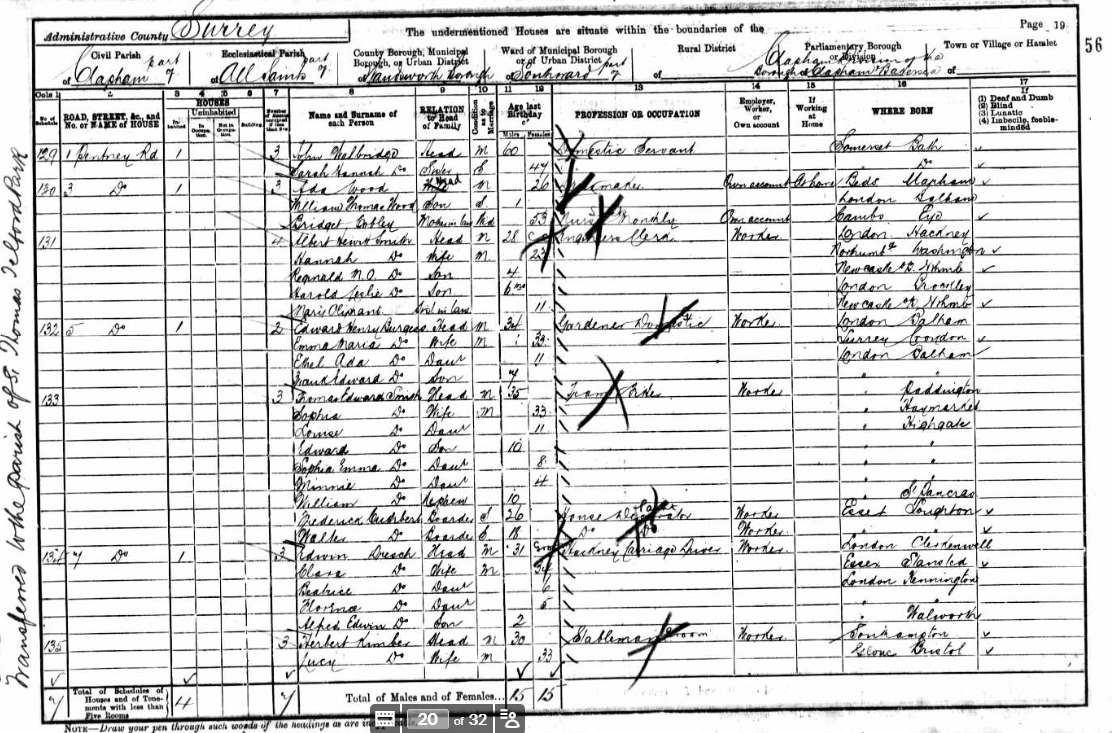 Administrative County Surrey
The undermentioned Houses are situate within the boundaries of the
Page 19
56
Civil Parish of Clapham part of
Ecclesiastical Parish of All Saints part of
County Borough, Municipal Borough, or Urban District of Wandsworth Borough
Ward of Municipal Borough or of Urban District of part of
Rural District of
Parliamentary Borough or Division of Clapham Division of the Borough of
Town or Village or Hamlet of
Cols 1 2 3 4 5 6 7 8 9 10 11 12 13 14 15 16 17
No. of Schedule ROAD, STREET, &c., and No. or NAME of HOUSE HOUSES Inhabited Uninhabited In Occupation Not in Occupation Building Number of Rooms occupied if less than five Name and Surname of each Person RELATION to Head of Family Condition as to Marriage Age last Birthday of Males Females PROFESSION OR OCCUPATION Employer, Worker, or Own account If Working at Home WHERE BORN (1) Deaf and Dumb (2) Blind (3) Lunatic (4) Imbecile, feeble-minded
129 1 Pentney Rd 1 3 John Walbridge Head M 60 Domestic Servant Somerset Bath
Sarah Hannah Do Sister S 47 " Do
130 3 Do 1 3 Ada Wood Head M 26 Own account At home Beds
William Thomas Wood Son S 1 London Balham
Bridget Cobley Mother in law Wd 53 Nurse Monthly Own account Cambs
131 4 Albert Hewit Smith Head M 28 Engineers Clerk Worker London Hackney
Hannah Do Wife M 23 Northumbd Washington
Reginald N.O. Do Son 4 Newcastle
Harold Leslie Do Son 6 mo London Brockley
Maris Oliphant Sist in law 11 Newcastle
132 5 Do 1 2 Edward Henry Burgess Head M 34 Gardener Domestic Worker London Balham
Emma Maria Do Wife M 39 Surrey Croydon
Ethel Ada Do Daur 11 London Balham
Frank Edward Do Son 7 " "
133 3 Thomas Edward Smith Head M 35 Tram Worker " Paddington
Sophia Do Wife M 33 " Haymarket
Louise Do Daur 11 " Highgate
Edward Do Son 10 " "
Sophia Emma Do Daur 8 " "
Minnie Do Daur 4 " "
William Do Nephew 10 " St Pancras
Frederick Cuthbert Boarder S 26 House Decorator Worker Essex Loughton
Walter Do Boarder S 18 Do Do Worker " "
134 7 Do 1 3 Edwin Dresch Head M 31 Hackney Carriage Driver Worker London Clerkenwell
Clara Do Wife M 34 Essex Stansted
Beatrice Do Daur 6 London Kennington
Florence Do Daur 5 " "
Alfred Edwin Do Son 2 " Walworth
135 3 Herbert Kimber Head M 30 Stableman Groom Worker Southampton
Lucy Do Wife M 33 Glouc Bristol
7 Total of Schedules of Houses and of Tenements with less than Five Rooms 4 7 Total of Males and of Females... 15 15
NOTE—Draw your pen through such words of the headings as are
20 of 32
Transferred to the parish of S. Thomas Telford Park